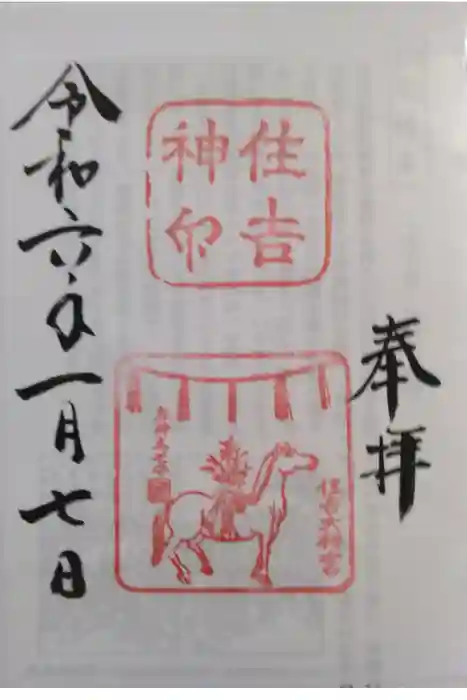 奉拝
住吉
神印
住吉大神宮
令和六年一月七日